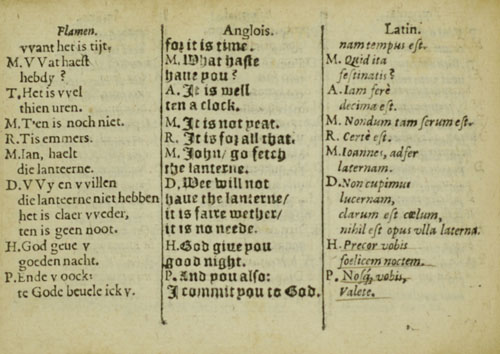 Flamen.
vvant het is tijt,
M. VVat haest
hebdy ?
T. Het is vvel
thien uren.
M. T'en is noch niet.
R. Tis emmers.
M. Ian, haelt
die lanteerne.
D. VVy en vvillen
die lanteerne niet hebben
het is claer vveder,
ten is geen noot.
H. God geue v
goeden nacht.
P. Ende v oock:
te Gode beuele ick v.
Anglois.
for it is time.
M. What haste
haue you ?
A. It is well
ten a clock.
M. It is not yeat.
R. It is for all that.
M. John/ go fetch
the lanterne.
D. Wee will not
haue the lanterne/
it is faire wether/
it is no neede.
H. God giue you
good night.
P. And you also:
I commit you to God.
Latin.
nam tempus est.
M. Quid ita
festinatis ?
A. Iam ferè
decima est.
M. Nondum tam serum est.
R. Certè est.
M. Ioannes, adfer
laternam.
D. Non cupimus
lucernam,
clarum est cœlum,
nihil est opus vlla laterna.
H. Precor vobis
foelicem noctem.
P. Nosq, vobis,
Valete.